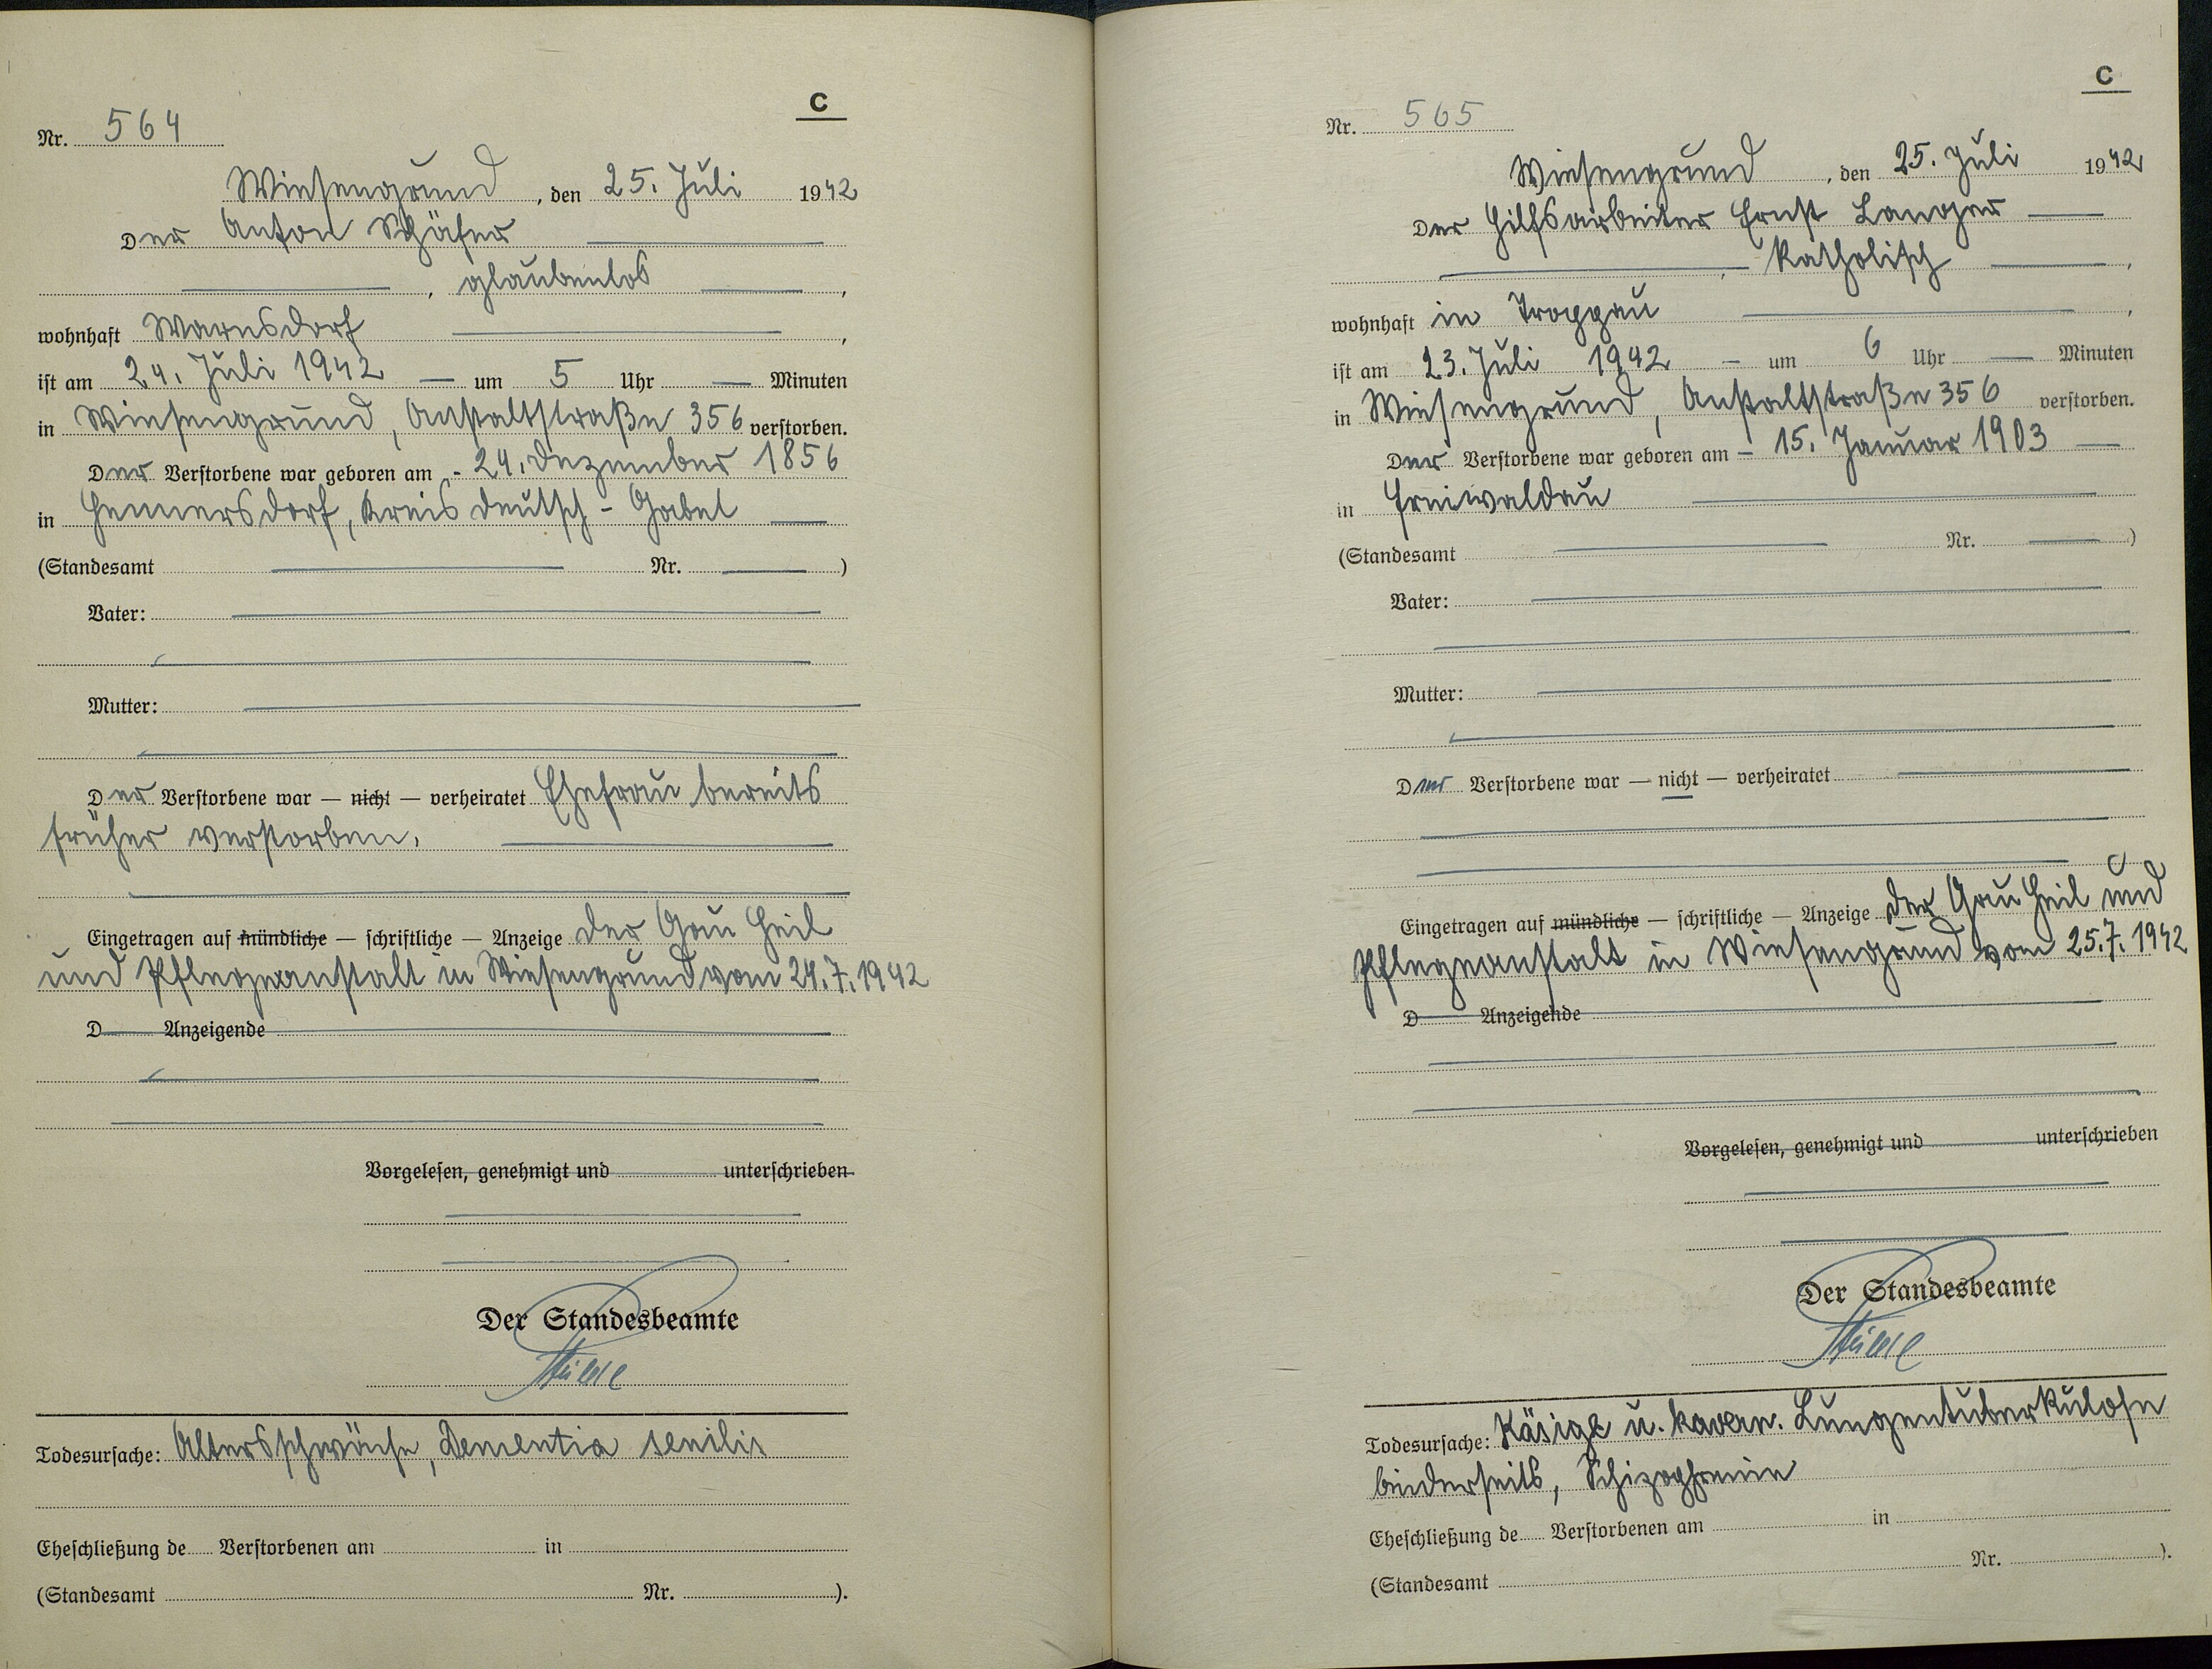 C
Nr. 564
Wiesengrund, den 25. Juli 1942
Der Anton Schäfer
, glaubenlos,
wohnhaft Warnsdorf,
ist am 24. Juli 1942 — um 5 Uhr — Minuten
in Wiesengrund, Anstaltstraße 356 verstorben.
Der Verstorbene war geboren am - 24. Dezember 1856
in Hennersdorf, Kreis Deutsch-Gabel —
(Standesamt — Nr. — )
Vater: —
Mutter: —
Der Verstorbene war — nicht — verheiratet Ehefrau bereits
früher verstorben.
Eingetragen auf mündliche — schriftliche — Anzeige der Gau Heil
und Pflegeanstalt in Wiesengrund vom 24.7.1942
D Anzeigende
Vorgelesen, genehmigt und unterschrieben
Der Standesbeamte
Todesursache: Altersschwäche, Dementia senilis
Eheschließung de Verstorbenen am in
(Standesamt Nr. ).
C
Nr. 565
Wiesengrund, den 25. Juli 1942
Der Hilfsarbeiter Ernst Langer —
, katholisch —,
wohnhaft in Troppau —,
ist am 23. Juli 1942 — um 6 Uhr — Minuten
in Wiesengrund, Anstaltstraße 356 verstorben.
Der Verstorbene war geboren am — 15. Januar 1903 —
in Freiwaldau —
(Standesamt — Nr. — )
Vater: —
Mutter: —
Der Verstorbene war — nicht — verheiratet —
Eingetragen auf mündliche — schriftliche — Anzeige der Gau Heil und
Pflegeanstalt in Wiesengrund vom 25.7.1942
D Anzeigende
Vorgelesen, genehmigt und unterschrieben
Der Standesbeamte
Todesursache: Käsige u. kavern. Lungentuberkulose
beiderseits, Schizophrenie
Eheschließung de Verstorbenen am in
(Standesamt Nr. ).